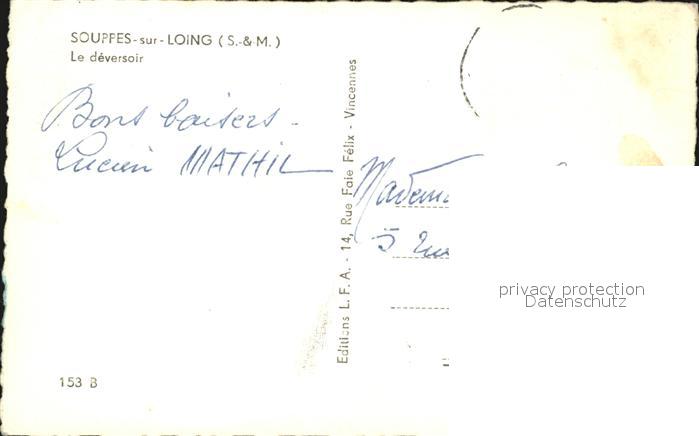 SOUPPES-sur-LOING (S.-&-M.)
Le déversoir
Bons baisers -
Lucien MATHIL
Editions L. F. A. - 14, Rue Faie Félix - Vincennes
5
privacy protection
Datenschutz
153 B